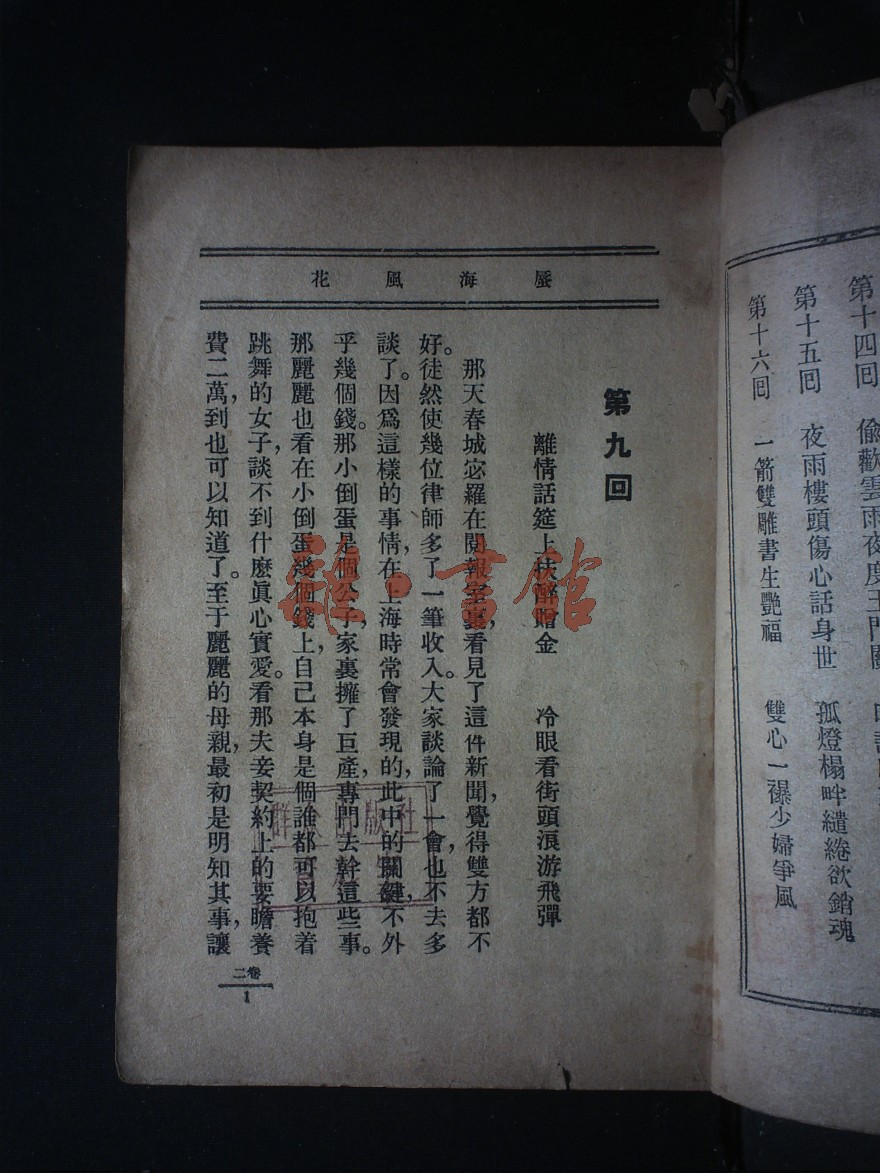 第十四回　偷歡雲雨夜度玉門關
第十五回　夜雨樓頭傷心話身世　孤燈榻畔繾綣欲銷魂
第十六回　一箭雙雕書生艷福　雙心一襪少婦爭風
蜃海風花
第九回
離情話筵上扶醉贈金　冷眼看街頭浪游飛彈
那天春城宓羅在閱報室裏看見了這件新聞，覺得雙方都不
好。徒然使幾位律師多了一筆收入。大家談論了一會，也不去多
談了。因爲這樣的事情，在上海時常會發現的，此中的關鍵，不外
乎幾個錢。那小倒蛋是個公子，家裏擁了巨產，專門去幹這些事。
那麗麗也看在小倒蛋幾個錢上，自己本身是個誰都可以抱着
跳舞的女子，談不到什麽眞心實愛。看那夫妾契約上的要瞻養
費二萬，到也可以知道了。至于麗麗的母親，最初是明知其事，讓
二卷
1
雜·書館
群眾出版社